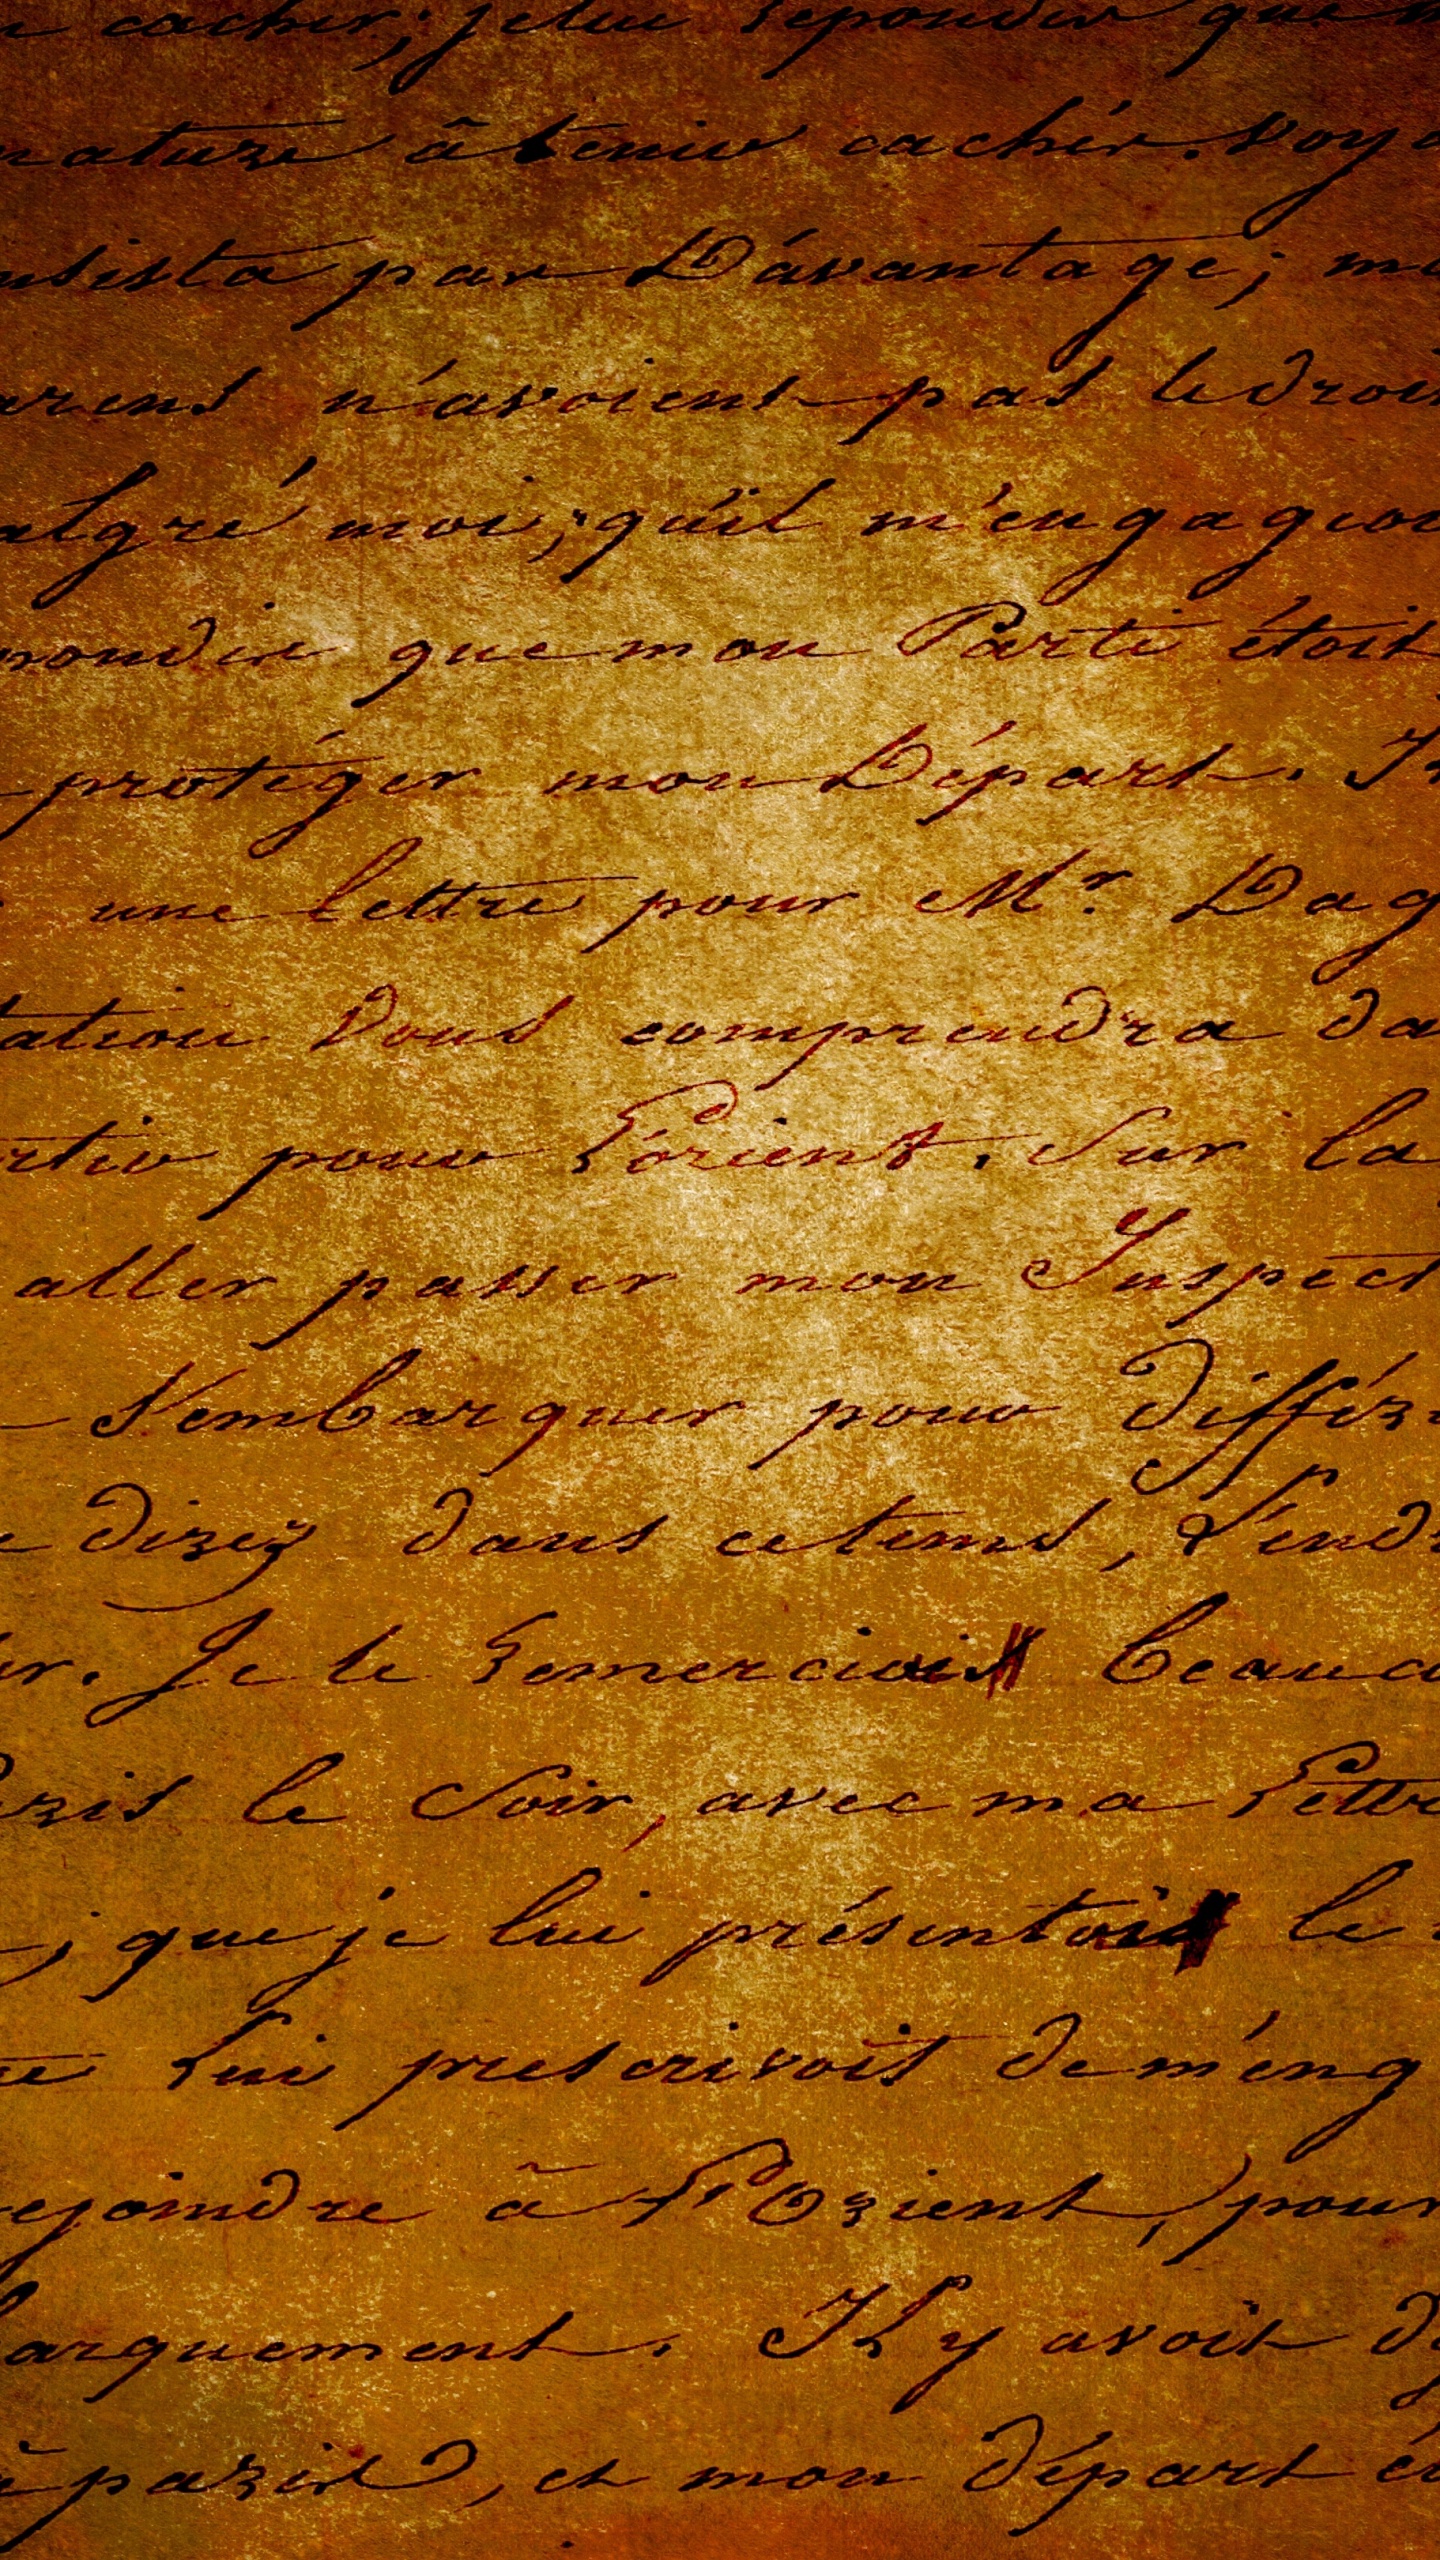 cacher; je lui repondis que
nature â tenir cacher. Voya
nsista par Dávantage; ma
arens n'avoient pas le droit
algré moi; qu'il m'engageoi
pondis que mon Parti étoit
protéger mon Départ. Il
une lettre pour Mr. Dag
tation Vous comprendra da
rtir pour l'orient. Sur la
aller passer mon Inspect
S'embarquer pour différ
dizez dans cetems, & S'end
ur. Je le remerciois beauco
le Soir, avec ma Lettre
; que je lui présentois le
lui prescrivoit de m'éng
rejoindre â l'Orient, pour
barquement. Il y avoit dé
à pazis, et mon départ é